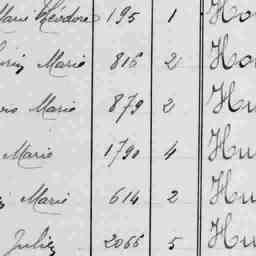 Marie Théodore 195 1 Ho
Marie 816 2 Ho
Marie 879 2 Hu
Marie 1790 4 Hu
Marie 614 2 Hu
Julien 2066 5 Hu